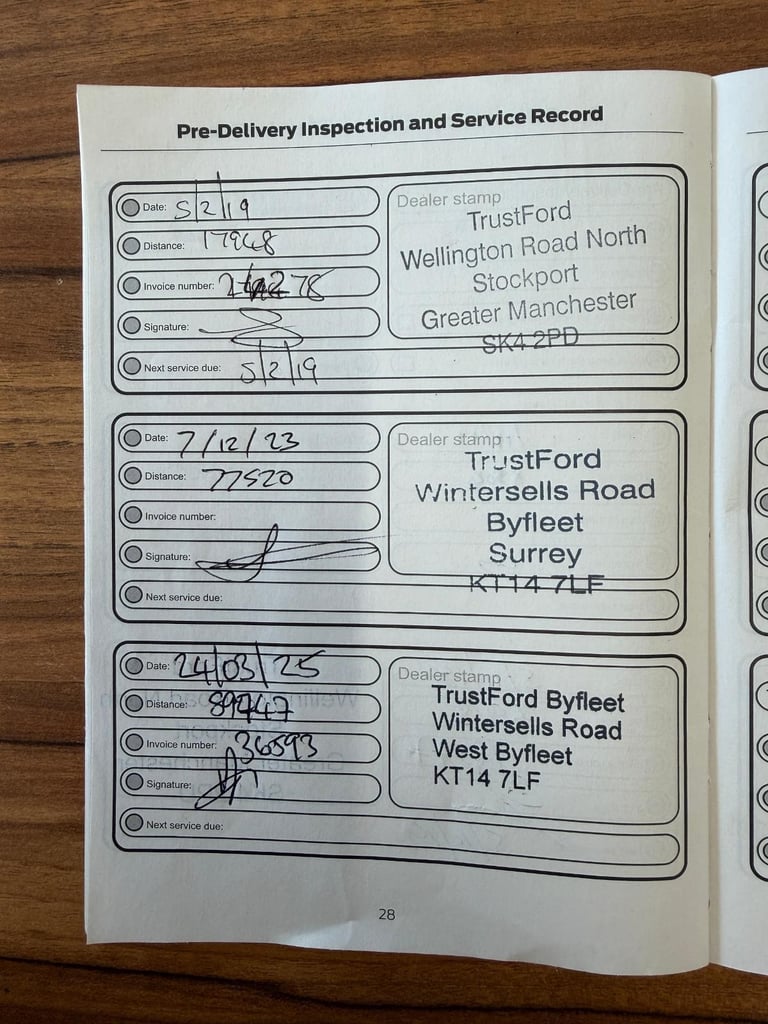 Pre-Delivery Inspection and Service Record
Date: 5/2/19
Distance: 17948
Invoice number:
Signature:
Next service due: 5/2/19
Dealer stamp
TrustFord
Wellington Road North
Stockport
Greater Manchester
SK4 2PD
Date: 7/12/23
Distance: 77520
Invoice number:
Signature:
Next service due:
Dealer stamp
TrustFord
Wintersells Road
Byfleet
Surrey
KT14 7LF
Date: 24/03/25
Distance: 89747
Invoice number: 36593
Signature:
Next service due:
Dealer stamp
TrustFord Byfleet
Wintersells Road
West Byfleet
KT14 7LF
28